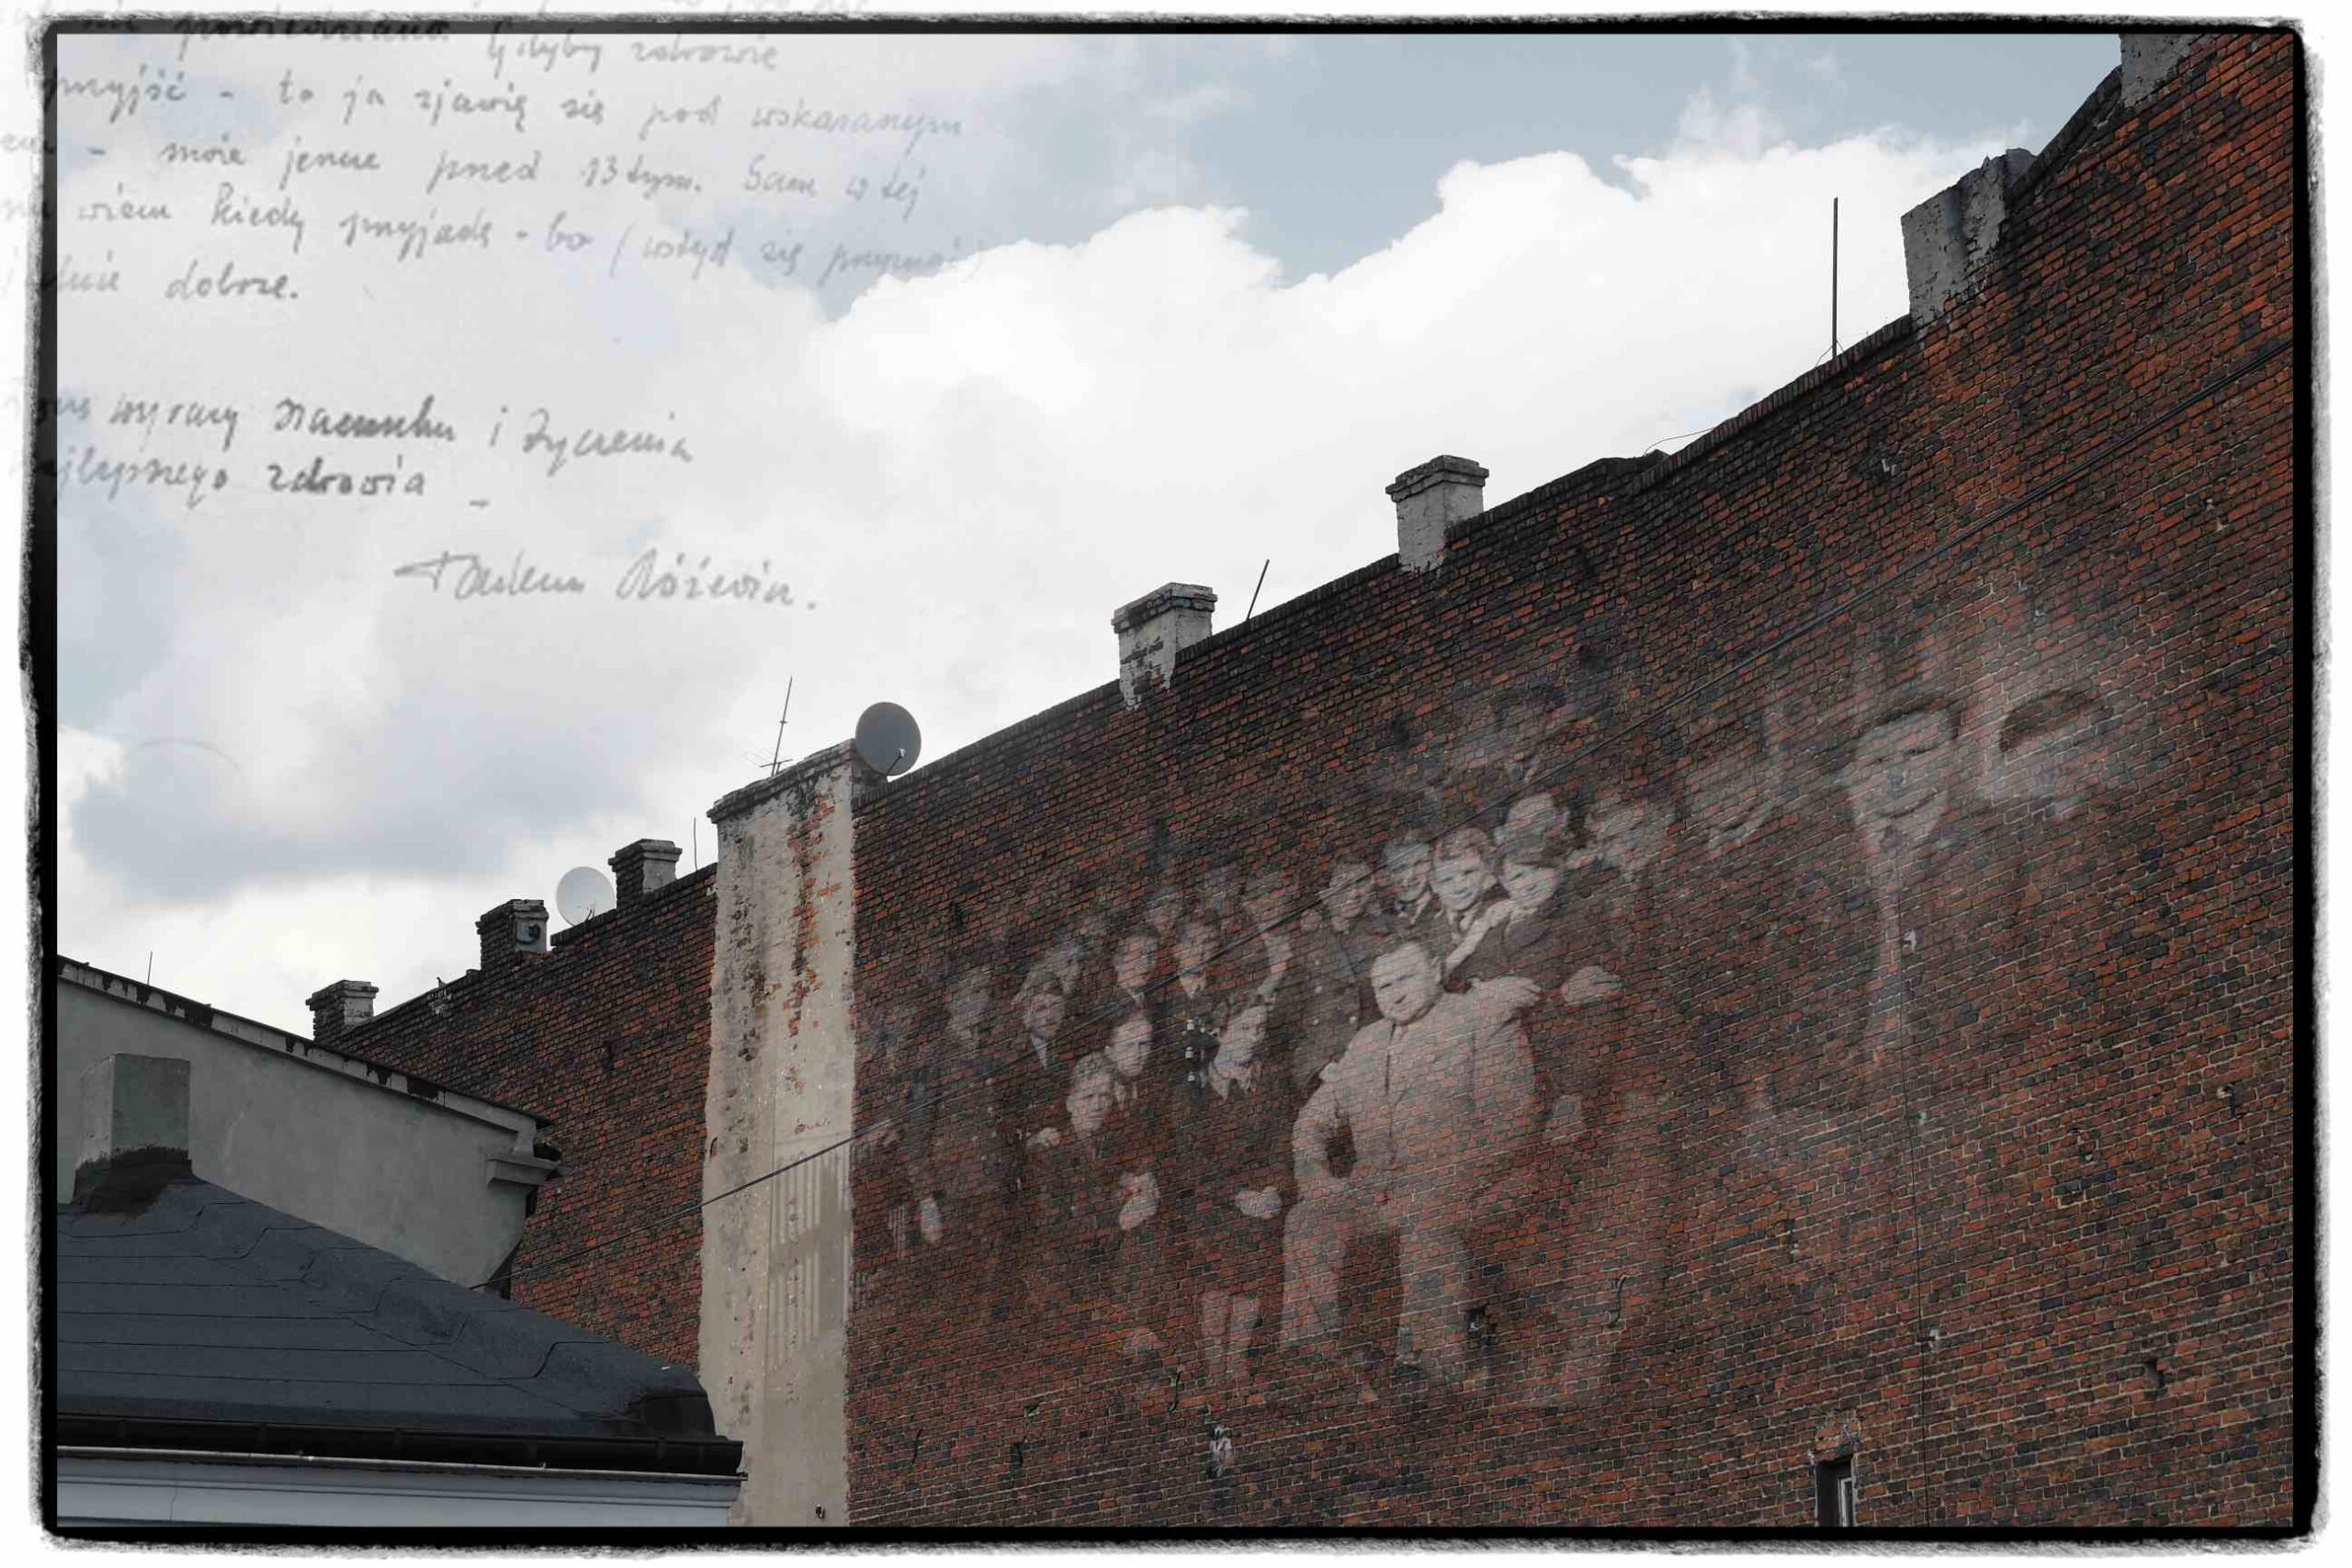 Gdyby zdrowie
przyjść - to ja zjawię się pod wskazanym
- może jeszcze przed 13tym. Sam w tej
wiem kiedy przyjadę - bo (wstyd się przyznać)
dobrze.
wyrazy szacunku i życzenia
najlepszego zdrowia -
Tadeusz Różewicz.